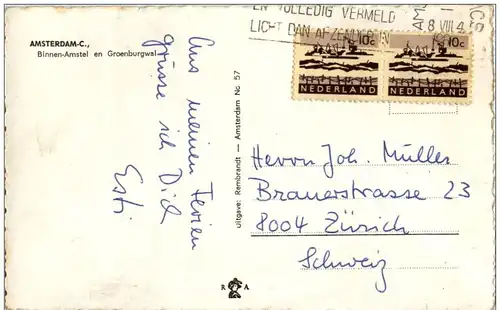 AMSTERDAM-C.,
Binnen-Amstel en Groenburgwal
Aus meinen Ferien
grüsse ich Dich
Esti
uitgave: Rembrandt — Amsterdam No. 57
EN VOLLEDIG VERMELD
LICHT DAN AFZENDER
8 VIII
10c 10c
NEDERLAND NEDERLAND
Herrn Joh. Müller
Brauerstrasse 23
8004 Zürich
Schweiz
R A